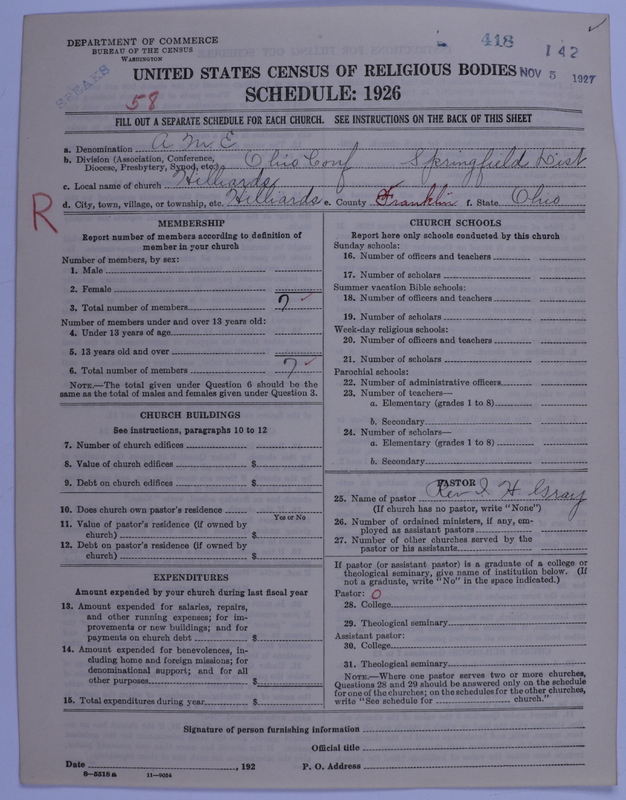 DEPARTMENT OF COMMERCE
BUREAU OF THE CENSUS
WASHINGTON
418
142
NOV 5 1927
UNITED STATES CENSUS OF RELIGIOUS BODIES
58
SCHEDULE: 1926
FILL OUT A SEPARATE SCHEDULE FOR EACH CHURCH. SEE INSTRUCTIONS ON THE BACK OF THIS SHEET
a. Denomination A M E
b. Division (Association, Conference, Diocese, Presbytery, Synod, etc.) Ohio Conf Springfield Dist
c. Local name of church Hilliards
d. City, town, village, or township, etc. Hilliards e. County Franklin f. State Ohio
R
MEMBERSHIP
Report number of members according to definition of
member in your church
Number of members, by sex:
1. Male
2. Female
3. Total number of members 7
Number of members under and over 13 years old:
4. Under 13 years of age
5. 13 years old and over
6. Total number of members 7
NOTE.—The total given under Question 6 should be
same as the total of males and females given under Question 3.
CHURCH BUILDINGS
See instructions, paragraphs 10 to 12
7. Number of church edifices
8. Value of church edifices $
9. Debt on church edifices $
10. Does church own pastor's residence
Yes or No
11. Value of pastor's residence (if owned by
church) $
12. Debt on pastor's residence (if owned by
church) $
EXPENDITURES
Amount expended by your church during last fiscal year
13. Amount expended for salaries, repairs,
and other running expenses; for im-
provements or new buildings; and for
payments on church debt $
14. Amount expended for benevolences, in-
cluding home and foreign missions; for
denominational support; and for all
other purposes $
15. Total expenditures during year $
CHURCH SCHOOLS
Report here only schools conducted by this church
Sunday schools:
16. Number of officers and teachers
17. Number of scholars
Summer vacation Bible schools:
18. Number of officers and teachers
19. Number of scholars
Week-day religious schools:
20. Number of officers and teachers
21. Number of scholars
Parochial schools:
22. Number of administrative officers
23. Number of teachers—
a. Elementary (grades 1 to 8)
b. Secondary
24. Number of scholars—
a. Elementary (grades 1 to 8)
b. Secondary
PASTOR
25. Name of pastor Rev I. H. Gray
(If church has no pastor, write "None")
26. Number of ordained ministers, if any, em-
ployed as assistant pastors
27. Number of other churches served by the
pastor or his assistants
If pastor (or assistant pastor) is a graduate of a college or
theological seminary, give name of institution below. (If
not a graduate, write "No" in the space indicated.)
Pastor: O
28. College
29. Theological seminary
Assistant pastor:
30. College
31. Theological seminary
NOTE.—Where one pastor serves two or more churches,
Questions 28 and 29 should be answered only on the schedule
for one of the churches; on the schedules for the other churches,
write "See schedule for church."
Signature of person furnishing information
Official title
Date , 192 P. O. Address
8—5318a 11—9034